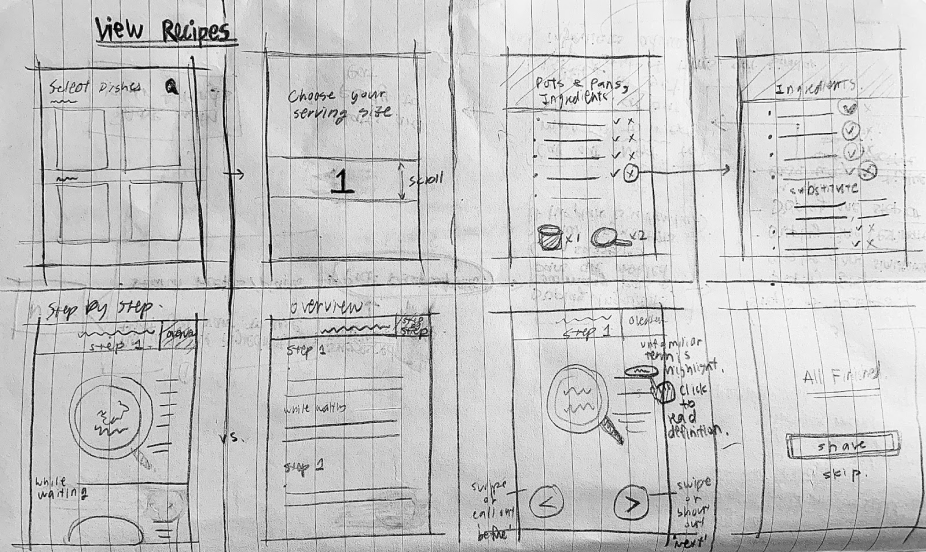 View Recipes
Select Dishes
Choose your
serving size
1
scroll
Pots & Pans,
Ingredients
x1
x2
Ingredients
substitute
Step by Step.
overview
step 1.
while
waiting
vs.
overview
step by
step
step 1
while waiting
step 1
overview
step 1
unfamiliar
terms
highlight.
click
to
read
definition.
swipe
or
call out
'before'
<
>
swipe
or
shout
out
'next'
All Finished
share
skip.